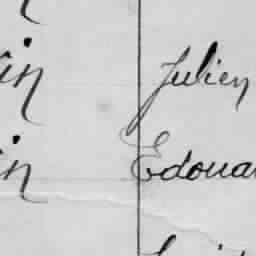 in Julien
in Edoua